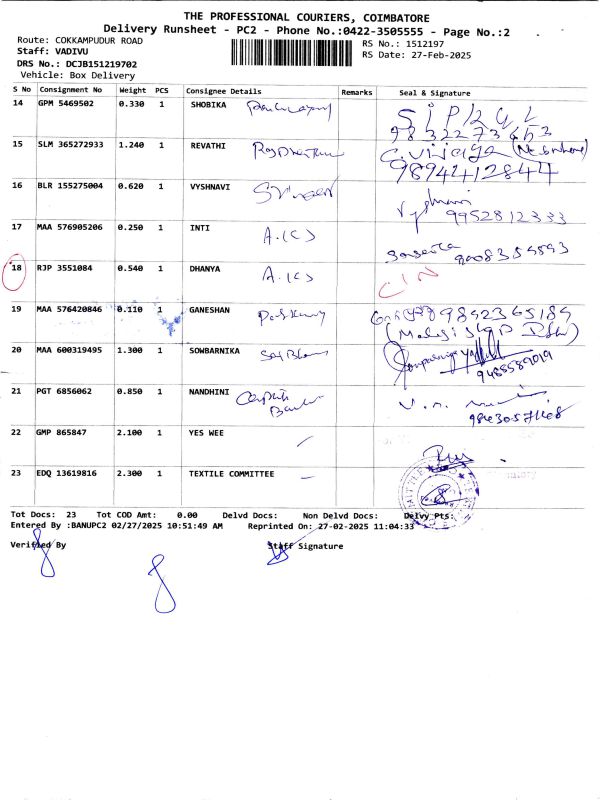 THE PROFESSIONAL COURIERS, COIMBATORE
Delivery Runsheet - PC2 - Phone No.:0422-3505555 - Page No.:2
Route: COKKAMPUDUR ROAD
Staff: VADIVU
DRS No.: DCJB151219702
Vehicle: Box Delivery
RS No.: 1512197
RS Date: 27-Feb-2025
S No Consignment No Weight PCS Consignee Details Remarks Seal & Signature
14 GPM 5469502 0.330 1 SHOBIKA
15 SLM 365272933 1.240 1 REVATHI C. Vijaya
9894412844
16 BLR 155275004 0.620 1 VYSHNAVI
9952812333
17 MAA 576905206 0.250 1 INTI A.(C)
9008359593
18 RJP 3551084 0.540 1 DHANYA A.(C)
19 MAA 576420846 0.110 1 GANESHAN 9892365189
20 MAA 600319495 1.300 1 SOWBARNIKA
9488589019
21 PGT 6856062 0.850 1 NANDHINI
22 GMP 865847 2.100 1 YES WEE
23 EDQ 13619816 2.300 1 TEXTILE COMMITTEE
Tot Docs: 23 Tot COD Amt: 0.00 Delvd Docs: Non Delvd Docs: Delvy Pts:
Entered By :BANUPC2 02/27/2025 10:51:49 AM Reprinted On: 27-02-2025 11:04:33
Verified By Staff Signature